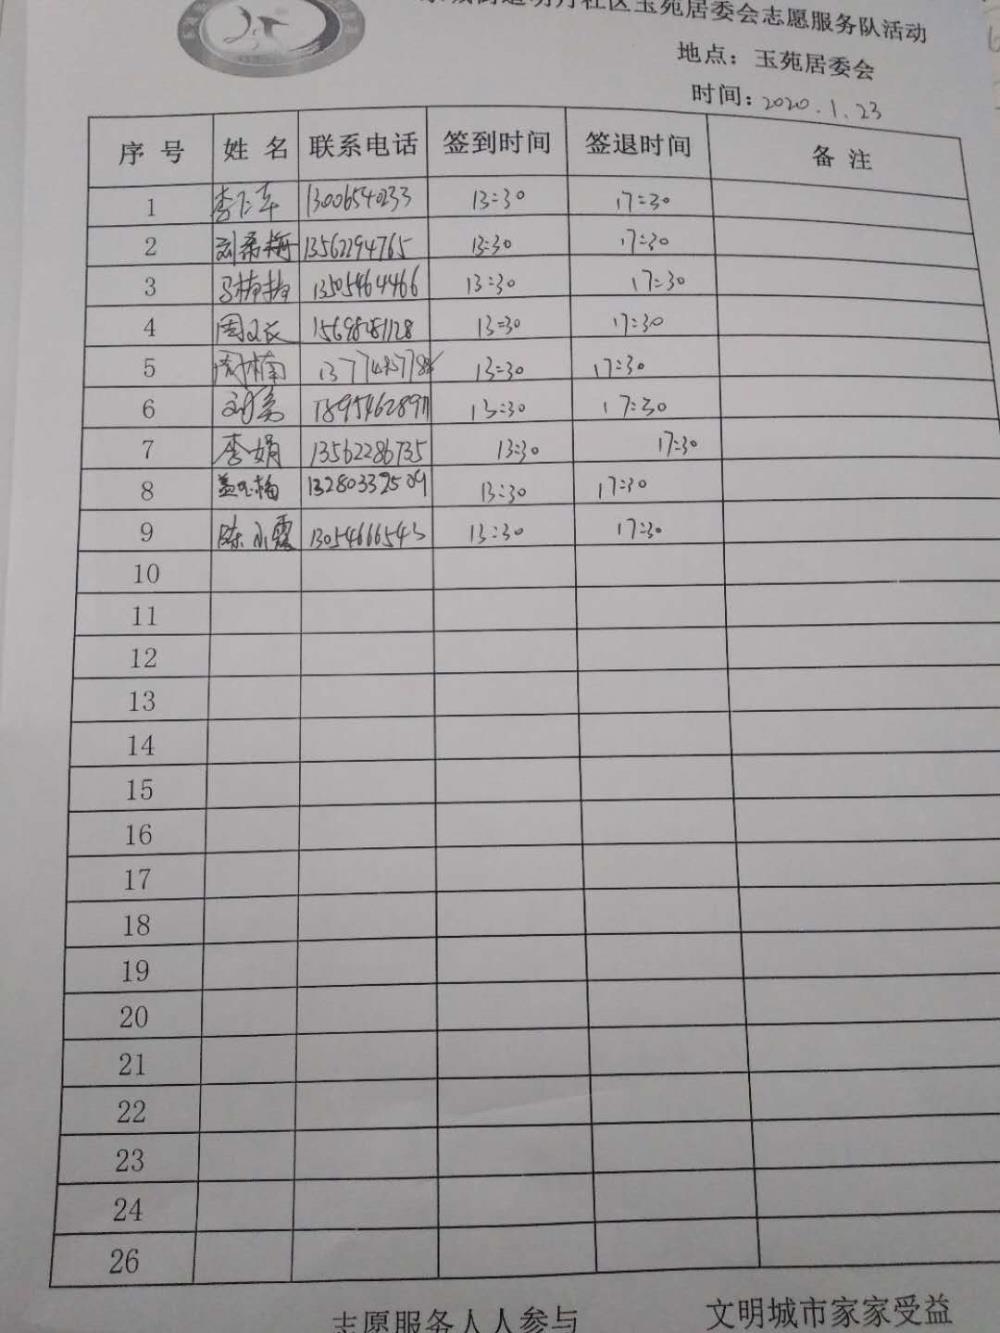 街道明月社区玉苑居委会志愿服务队活动
地点：玉苑居委会
时间：2020.1.23
序号 姓名 联系电话 签到时间 签退时间 备注
1 13006540233 13:30 17:30
2 13562294765 13:30 17:30
3 13505464466 13:30 17:30
4 周文 13:30 17:30
5 周楠 13:30 17:30
6 刘 13:30 17:30
7 李娟 13562286735 13:30 17:30
8 盖玉梅 13280332509 13:30 17:30
9 陈小霞 13054666543 13:30 17:30
10
11
12
13
14
15
16
17
18
19
20
21
22
23
24
26
志愿服务人人参与 文明城市家家受益